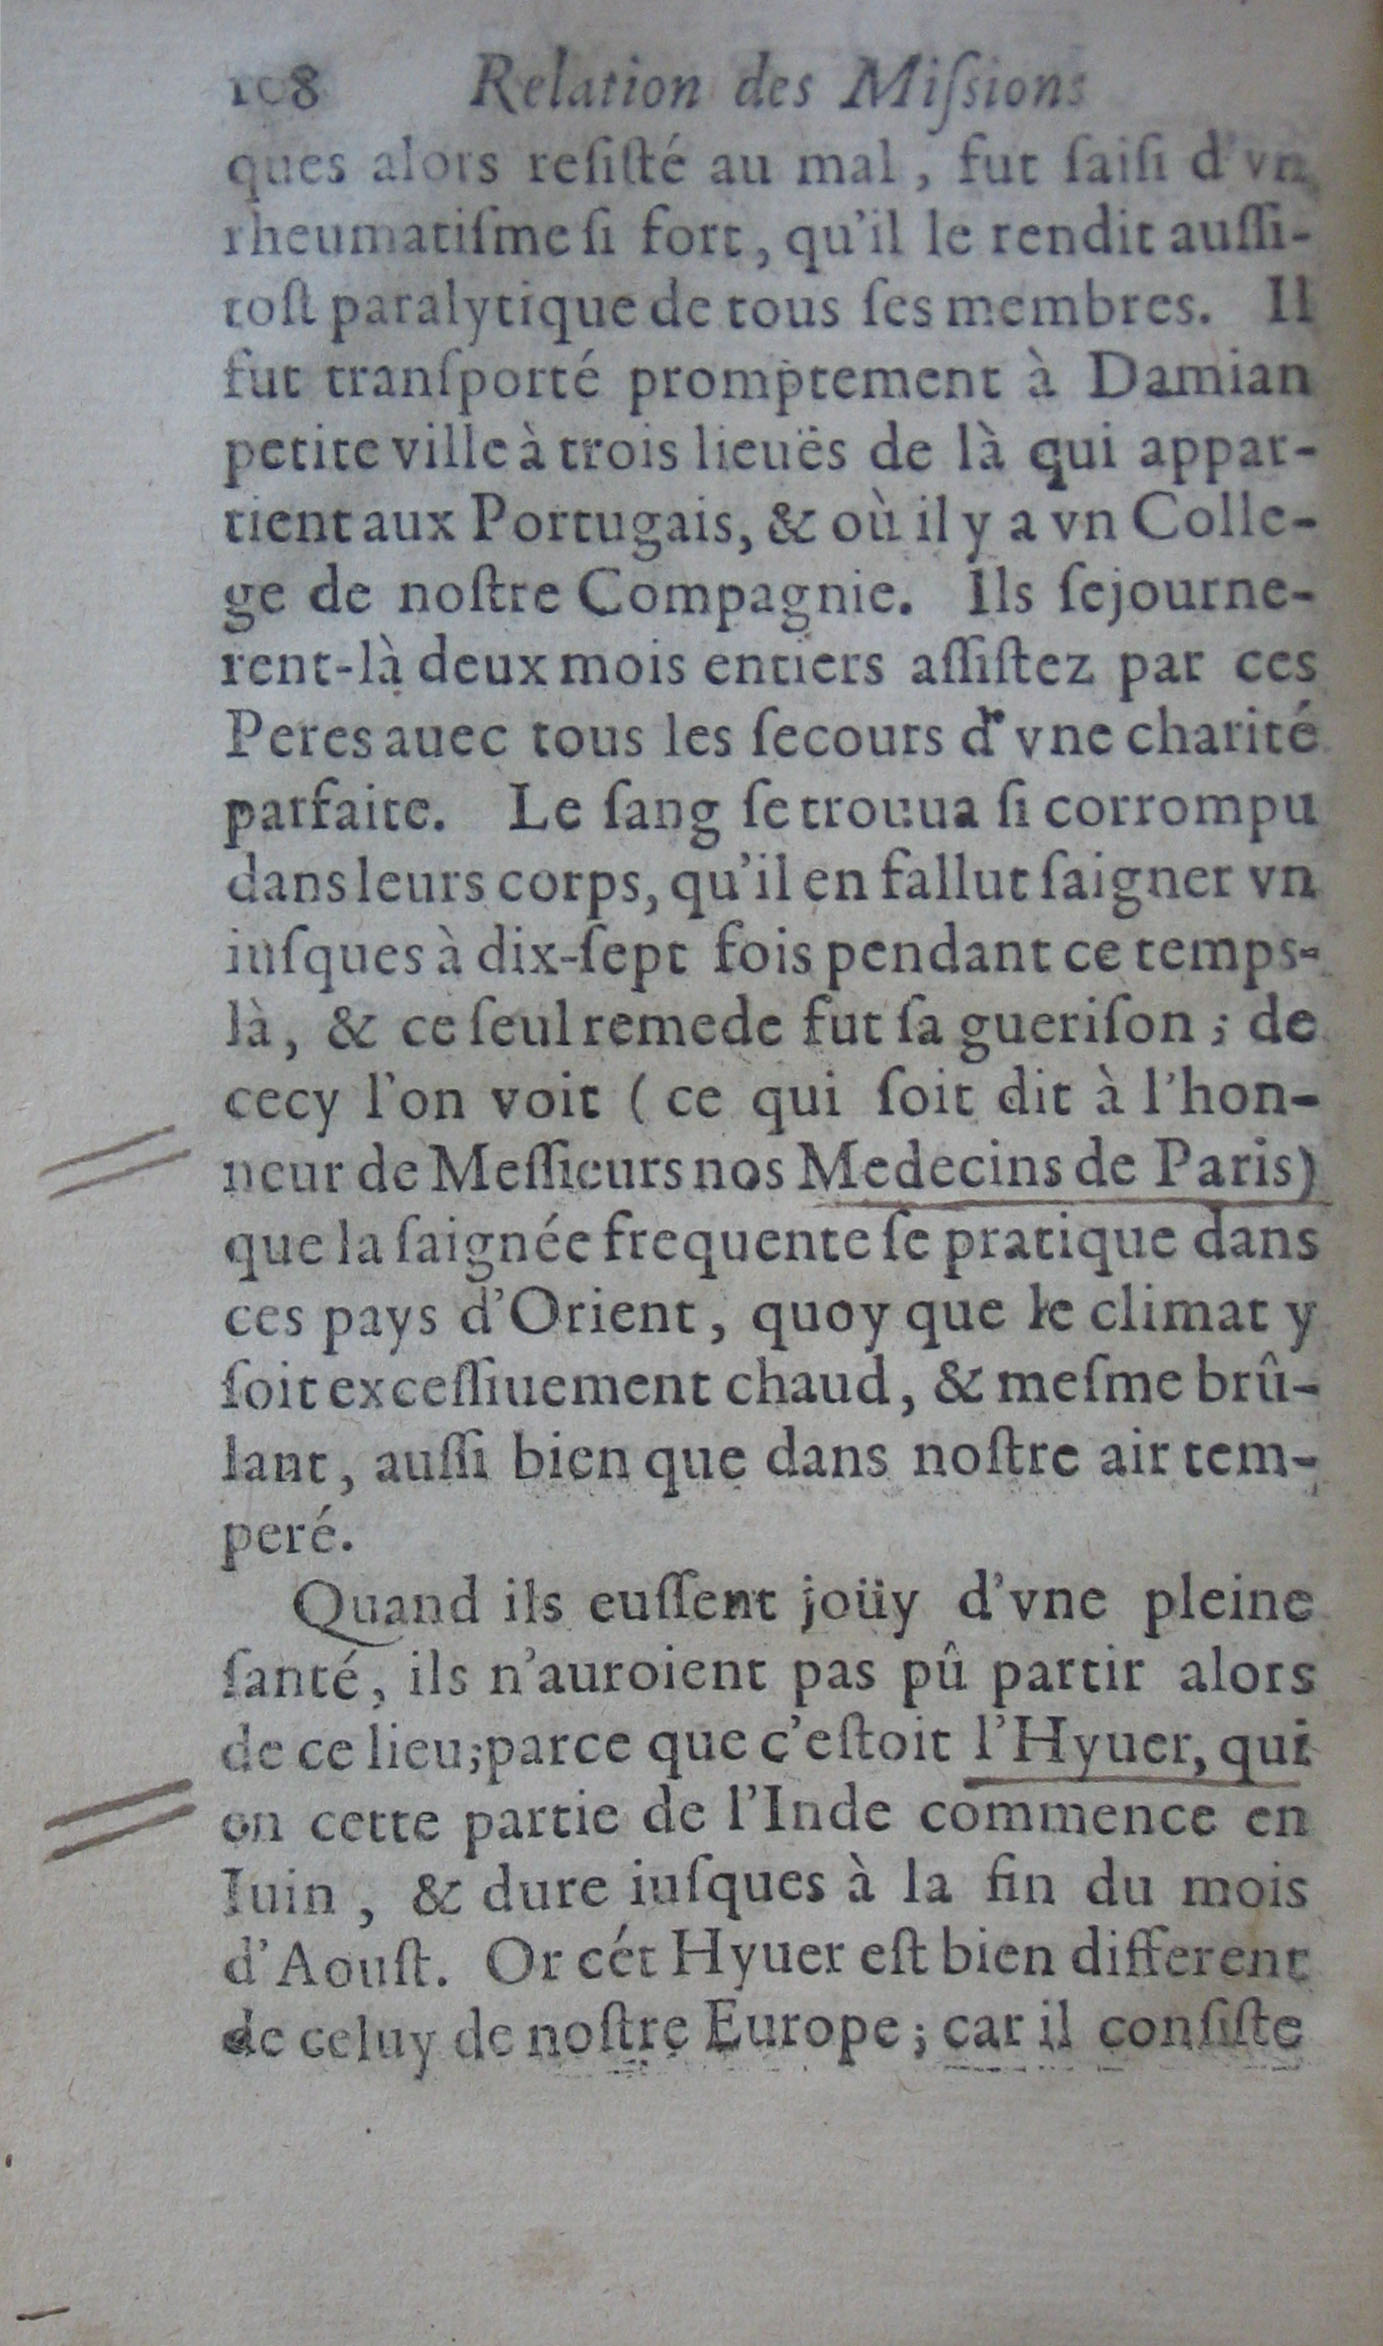 108 Relation des Miſsions
ques alors reſiſté au mal, fut ſaiſi d'vn
rheumatiſme ſi fort, qu'il le rendit auſſi-
toſt paralytique de tous ſes membres. Il
fut tranſporté promptement à Damian
petite ville à trois lieuës de là qui appar-
tient aux Portugais, & où il y a vn Colle-
ge de noſtre Compagnie. Ils ſejourne-
rent-là deux mois entiers aſſiſtez par ces
Peres auec tous les ſecours d'vne charité
parfaite. Le ſang ſe trouua ſi corrompu
dans leurs corps, qu'il en fallut ſaigner vn
iuſques à dix-ſept fois pendant ce temps-
là, & ce ſeul remede fut ſa gueriſon ; de
cecy l'on voit ( ce qui ſoit dit à l'hon-
neur de Meſſieurs nos Medecins de Paris)
que la ſaignée frequente ſe pratique dans
ces pays d'Orient, quoy que le climat y
ſoit exceſſiuement chaud, & meſme brû-
lant, auſſi bien que dans noſtre air tem-
peré.
Quand ils euſſent joüy d'vne pleine
ſanté, ils n'auroient pas pû partir alors
de ce lieu; parce que c'eſtoit l'Hyuer, qui
en cette partie de l'Inde commence en
Iuin, & dure iuſques à la fin du mois
d'Aouſt. Or cét Hyuer eſt bien different
de celuy de noſtre Europe ; car il conſiſte